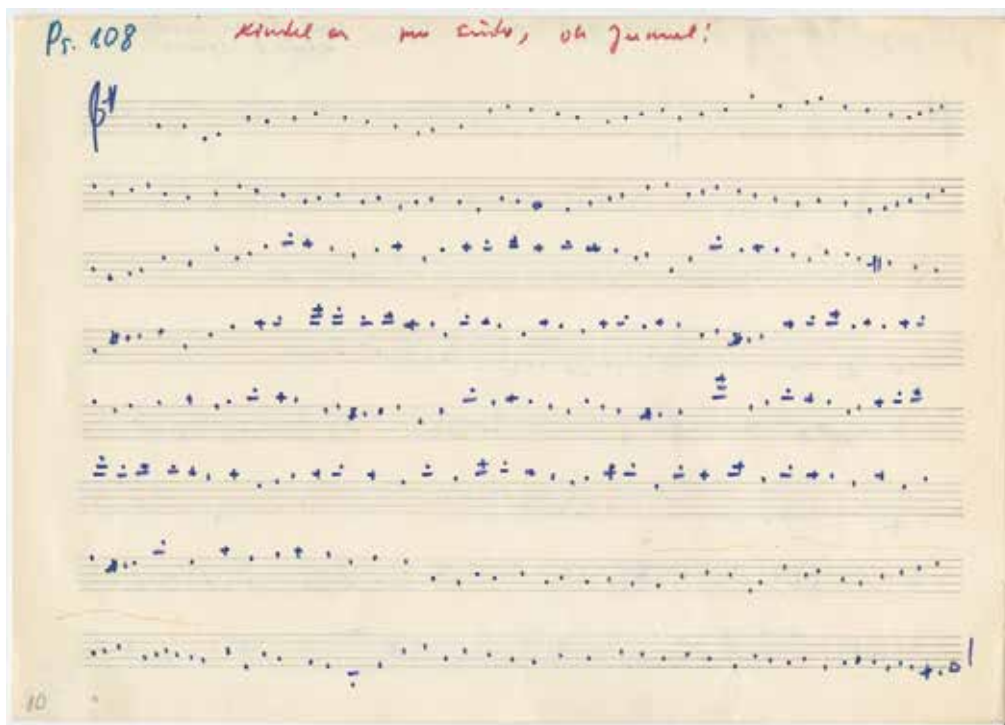 Ps. 108 Kindel on mu süda, oh Jumal!
10